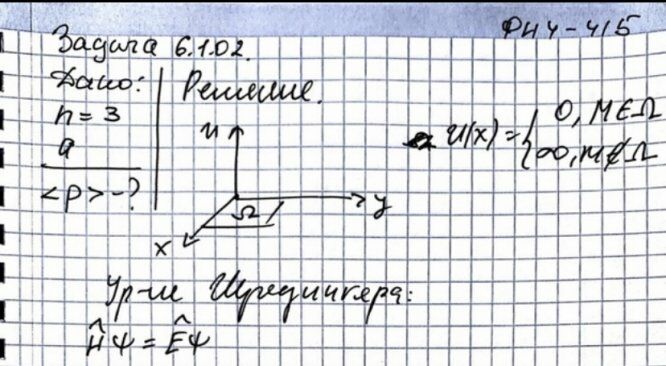 ФН4-41Б
Задача 6.1.02.
Дано:
n = 3
a
<p> - ?
Решение.
u
y
x
Ω
U(x) = { 0, M ∈ Ω
∞, M ∉ Ω
Ур-ие Шредингера:
Ĥψ = Êψ